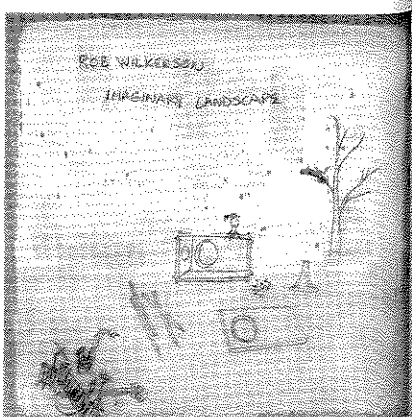 ROB WILKERSON
IMAGINARY LANDSCAPE